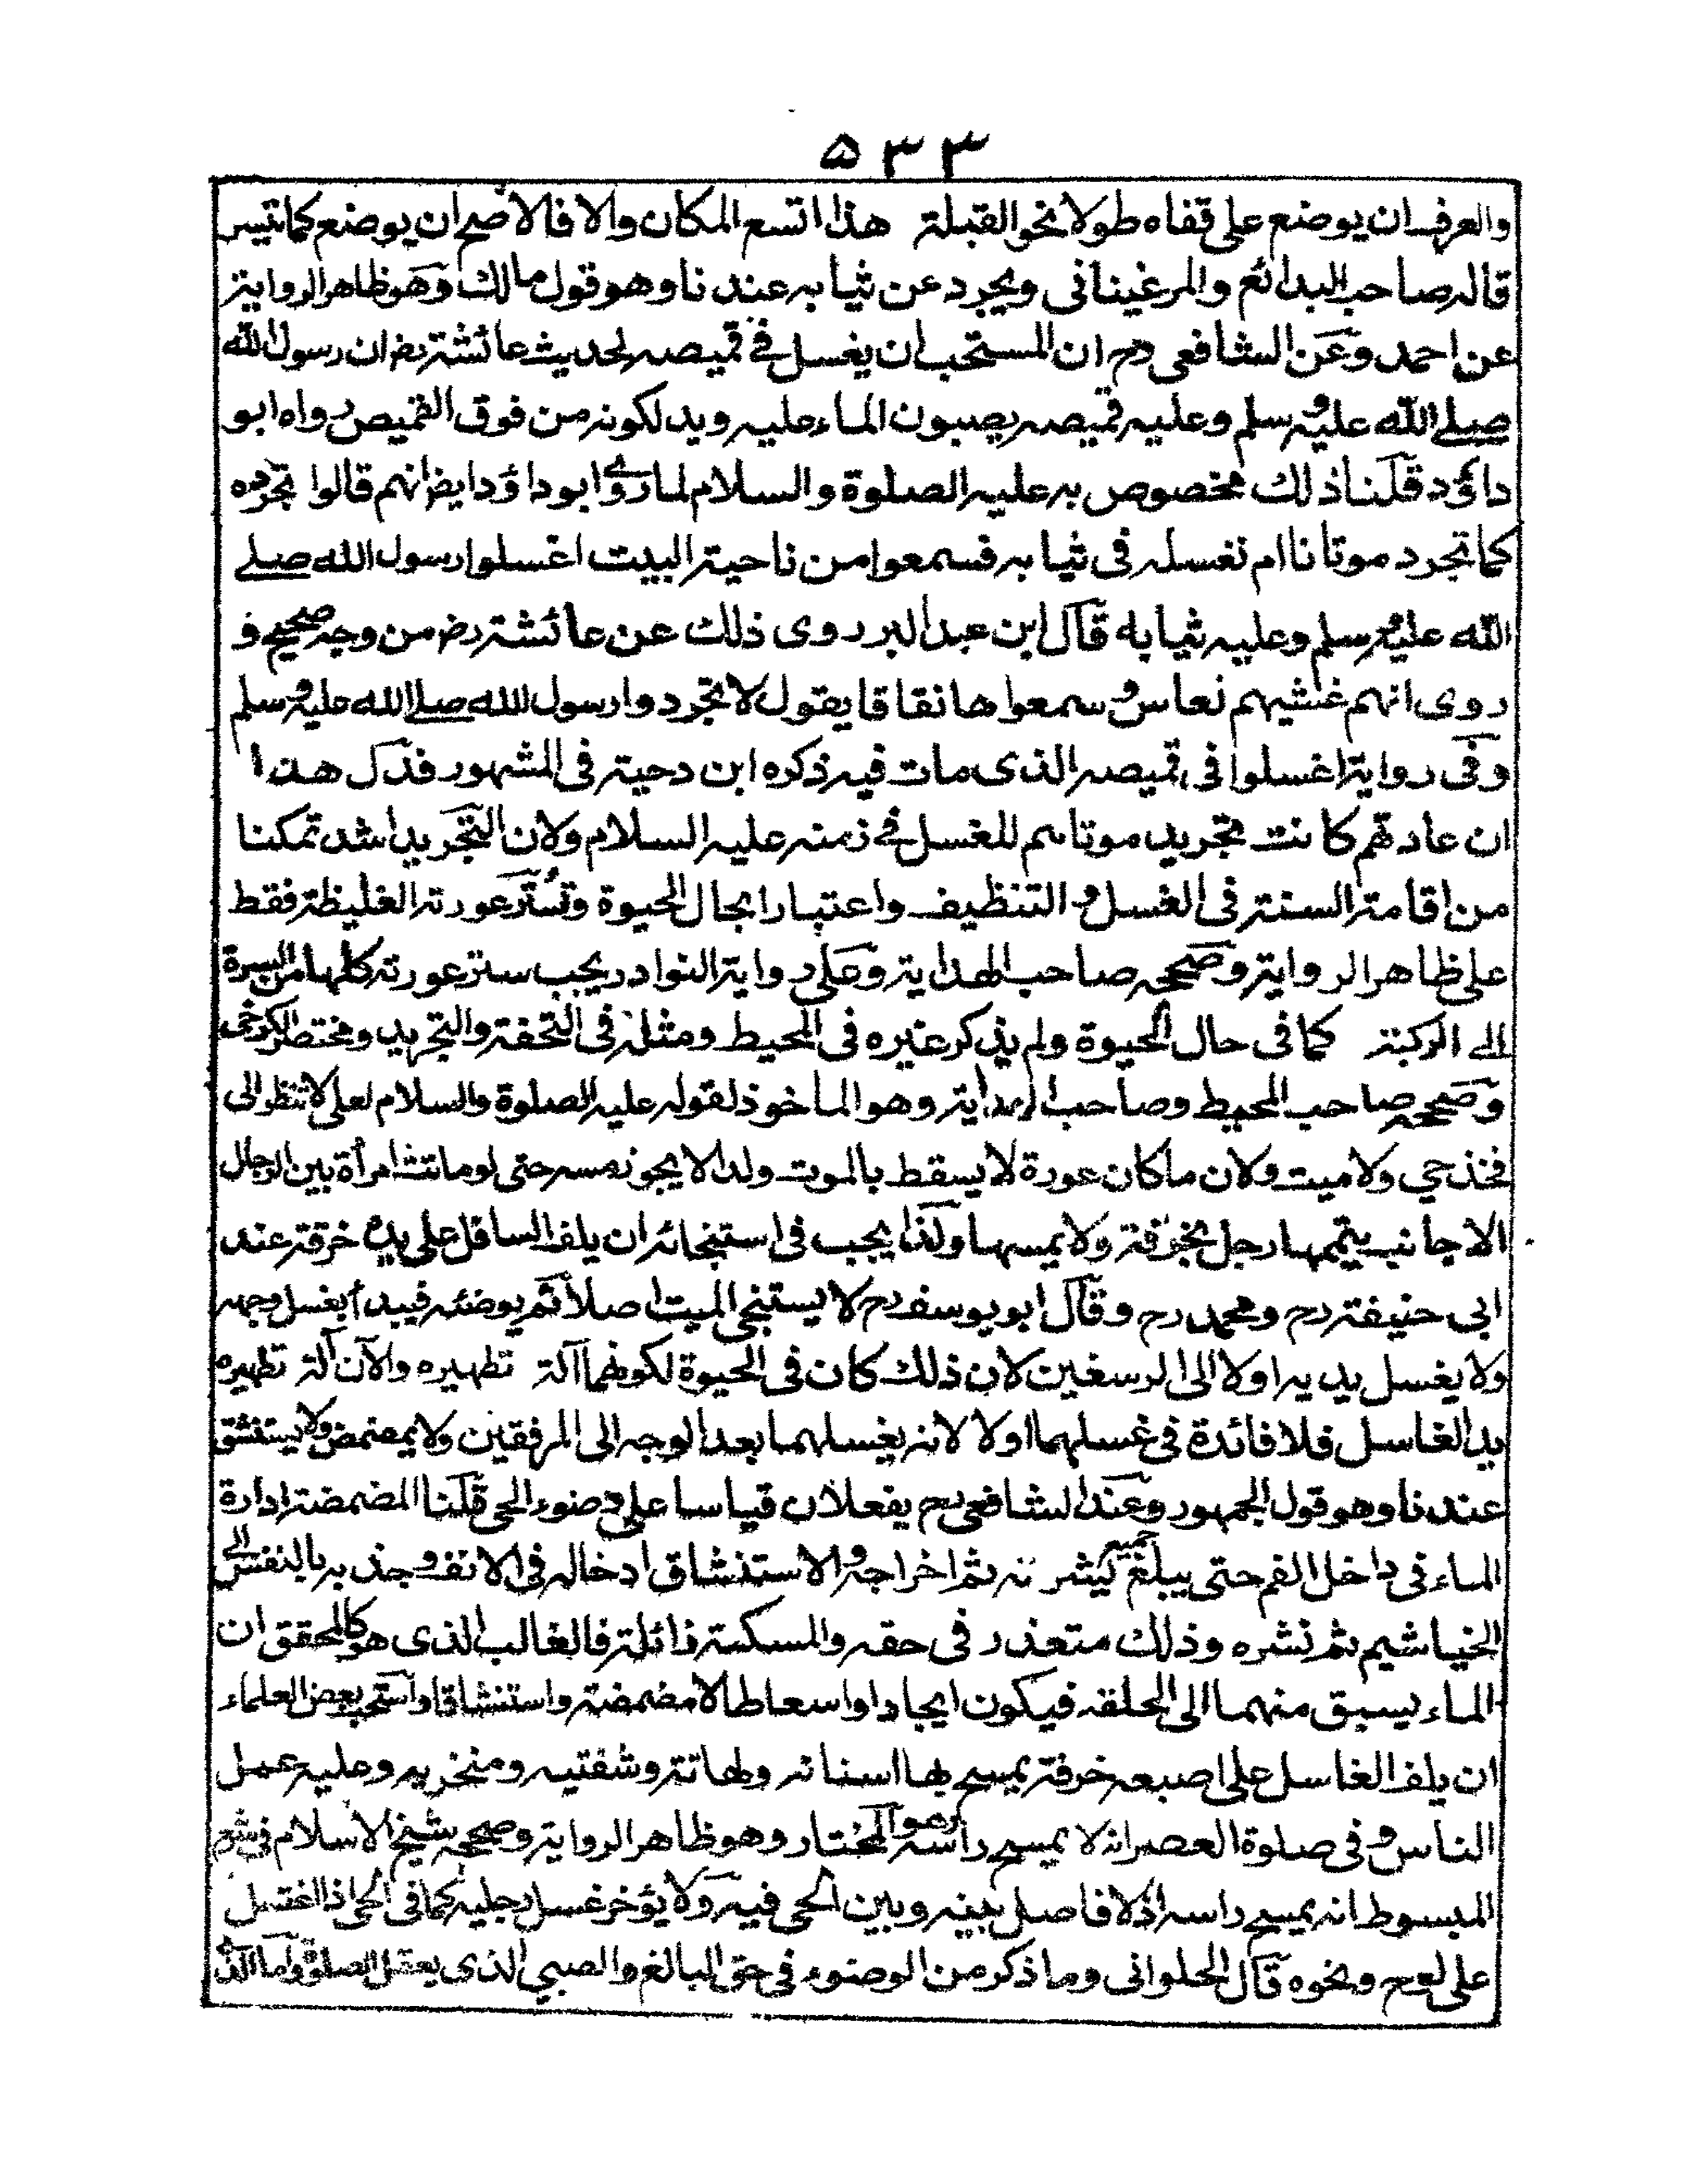 ۵۳۳
والعرف ان يوضع على قفاه طولا نحو القبلة هذا اتسع المكان والا فالاصح ان يوضع كما تيسر
قاله صاحب البدائع والمرغينانى ويجرد عن ثيابه عندنا وهو قول مالك وهو ظاهر الرواية
عن احمد وعن الشافعى رح ان المستحب ان يغسل فى قميصه لحديث عائشة رض ان رسول الله
صلى الله عليه وسلم وعليه قميصه يصبون الماء عليه ويدلكونه من فوق القميص رواه ابو
داؤد قلنا ذلك مخصوص به عليه الصلوة والسلام لما روى ابوداؤد ايضا انهم قالوا نجرده
كما تجرد موتانا ام نغسله فى ثيابه فسمعوا من ناحية البيت اغسلوا رسول الله صلى
الله عليه وسلم وعليه ثيابه قال ابن عبد البر روى ذلك عن عائشة رض من وجه صحيح و
روى انهم غشيهم نعاس وسمعوا هاتفا يقول لا تجردوا رسول الله صلى الله عليه وسلم
وفى رواية اغسلوا فى قميصه الذى مات فيه ذكره ابن دحية فى المشهور فدل هذا
ان عادتهم كانت تجريد موتاهم للغسل فى زمنه عليه السلام ولان التجريد اشد تمكنا
من اقامة السنة فى الغسل والتنظيف واعتبارا بحال الحيوة وتستر عورته الغليظة فقط
على ظاهر الرواية وصححه صاحب الهداية وعلى رواية النوادر يجب ستر عورته كلها من السرة
الى الركبة كما فى حال الحيوة ولم يذكر غيره فى المحيط ومثله فى التحفة والتجريد ومختصر الكرخى
وصححه صاحب المحيط وصاحب الهداية وهو الماخوذ لقوله عليه الصلوة والسلام لعلى لا تنظر الى
فخذ حي ولا ميت ولان ما كان عورة لا يسقط بالموت ولذا لا يجوز مسه حتى لو ماتت امرأة بين الرجال
الاجانب يتممها رجل بخرقة ولا يمسها ولذا يجب فى استنجائه ان يلف الغاسل على يده خرقة عند
ابى حنيفة رح ومحمد رح وقال ابو يوسف رح لا يستنجى الميت اصلا ثم يوضئه فيبدأ بغسل وجهه
ولا يغسل يديه اولا الى الرسغين لان ذلك كان فى الحيوة لكونهما آلة تطهيره والآن آلة تطهيره
يد الغاسل فلا فائدة فى غسلهما اولا لانه يغسلهما بعد الوجه الى المرفقين ولا يمضمض ولا يستنشق
عندنا وهو قول الجمهور وعند الشافعى رح يفعلان قياسا على وضوء الحى قلنا المضمضة ادارة
الماء فى داخل الفم حتى يبلغ جميع ثم اخراجه والاستنشاق ادخاله فى الانف وجذبه بالنفس الى
الخياشيم ثم نشره وذلك متعذر فى حقه والمسكة زائلة فالغالب الذى هو كالمحقق ان
الماء يسبق منهما الى الحلقه فيكون ايجادا واسعاطا لا مضمضة واستنشاقا واستحب بعض العلماء
ان يلف الغاسل على اصبعه خرقة يمسح بها اسنانه ولهاته وشفتيه ومنخريه وعليه عمل
الناس وفى صلوة العصر انه لا يمسح راسه وهو المختار وهو ظاهر الرواية وصححه شيخ الاسلام فى شرح
المبسوط انه يمسح راسه اذ لا فاصل بينه وبين الحى فيه ولا يؤخر غسل رجليه كما فى الحى اذا اغتسل
على لوح ونحوه قال الحلوانى وما ذكر من الوضوء فى حق البالغ والصبي الذى يعقل الصلوة واما الذى